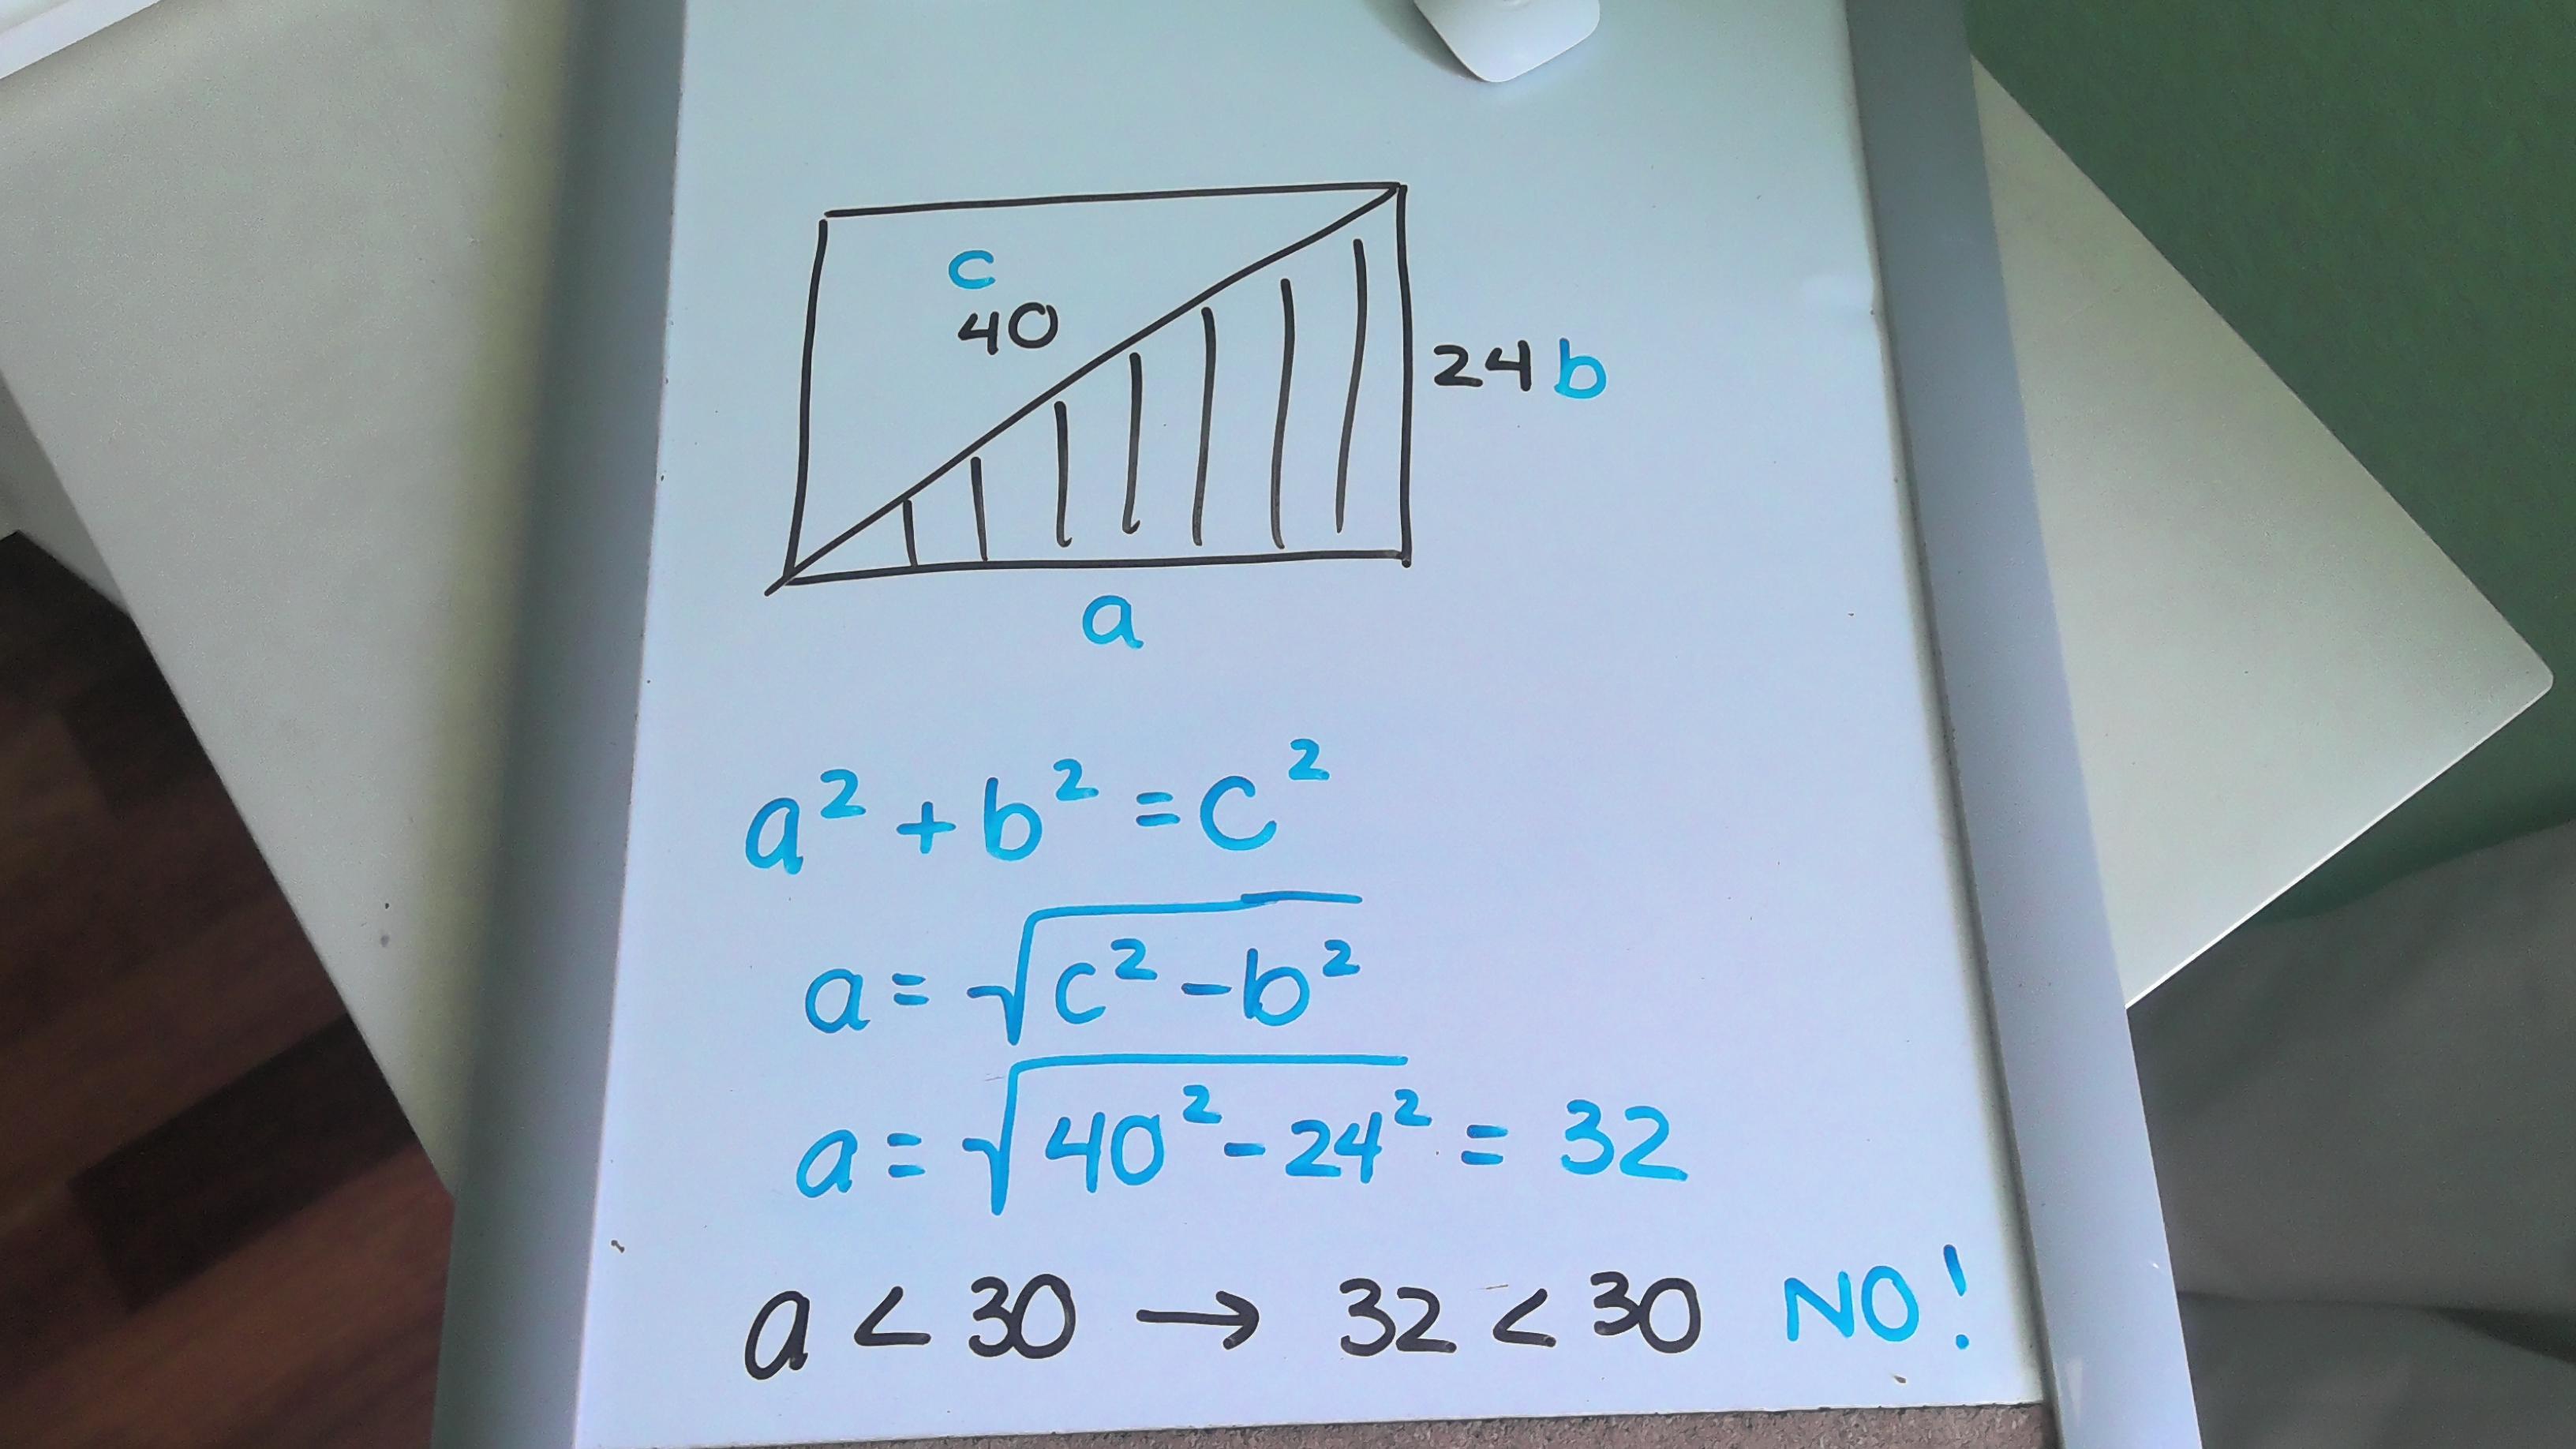 c
40
24 b
a
a² + b² = c²
a = √c² - b²
a = √40² - 24² = 32
a < 30 → 32 < 30 NO!